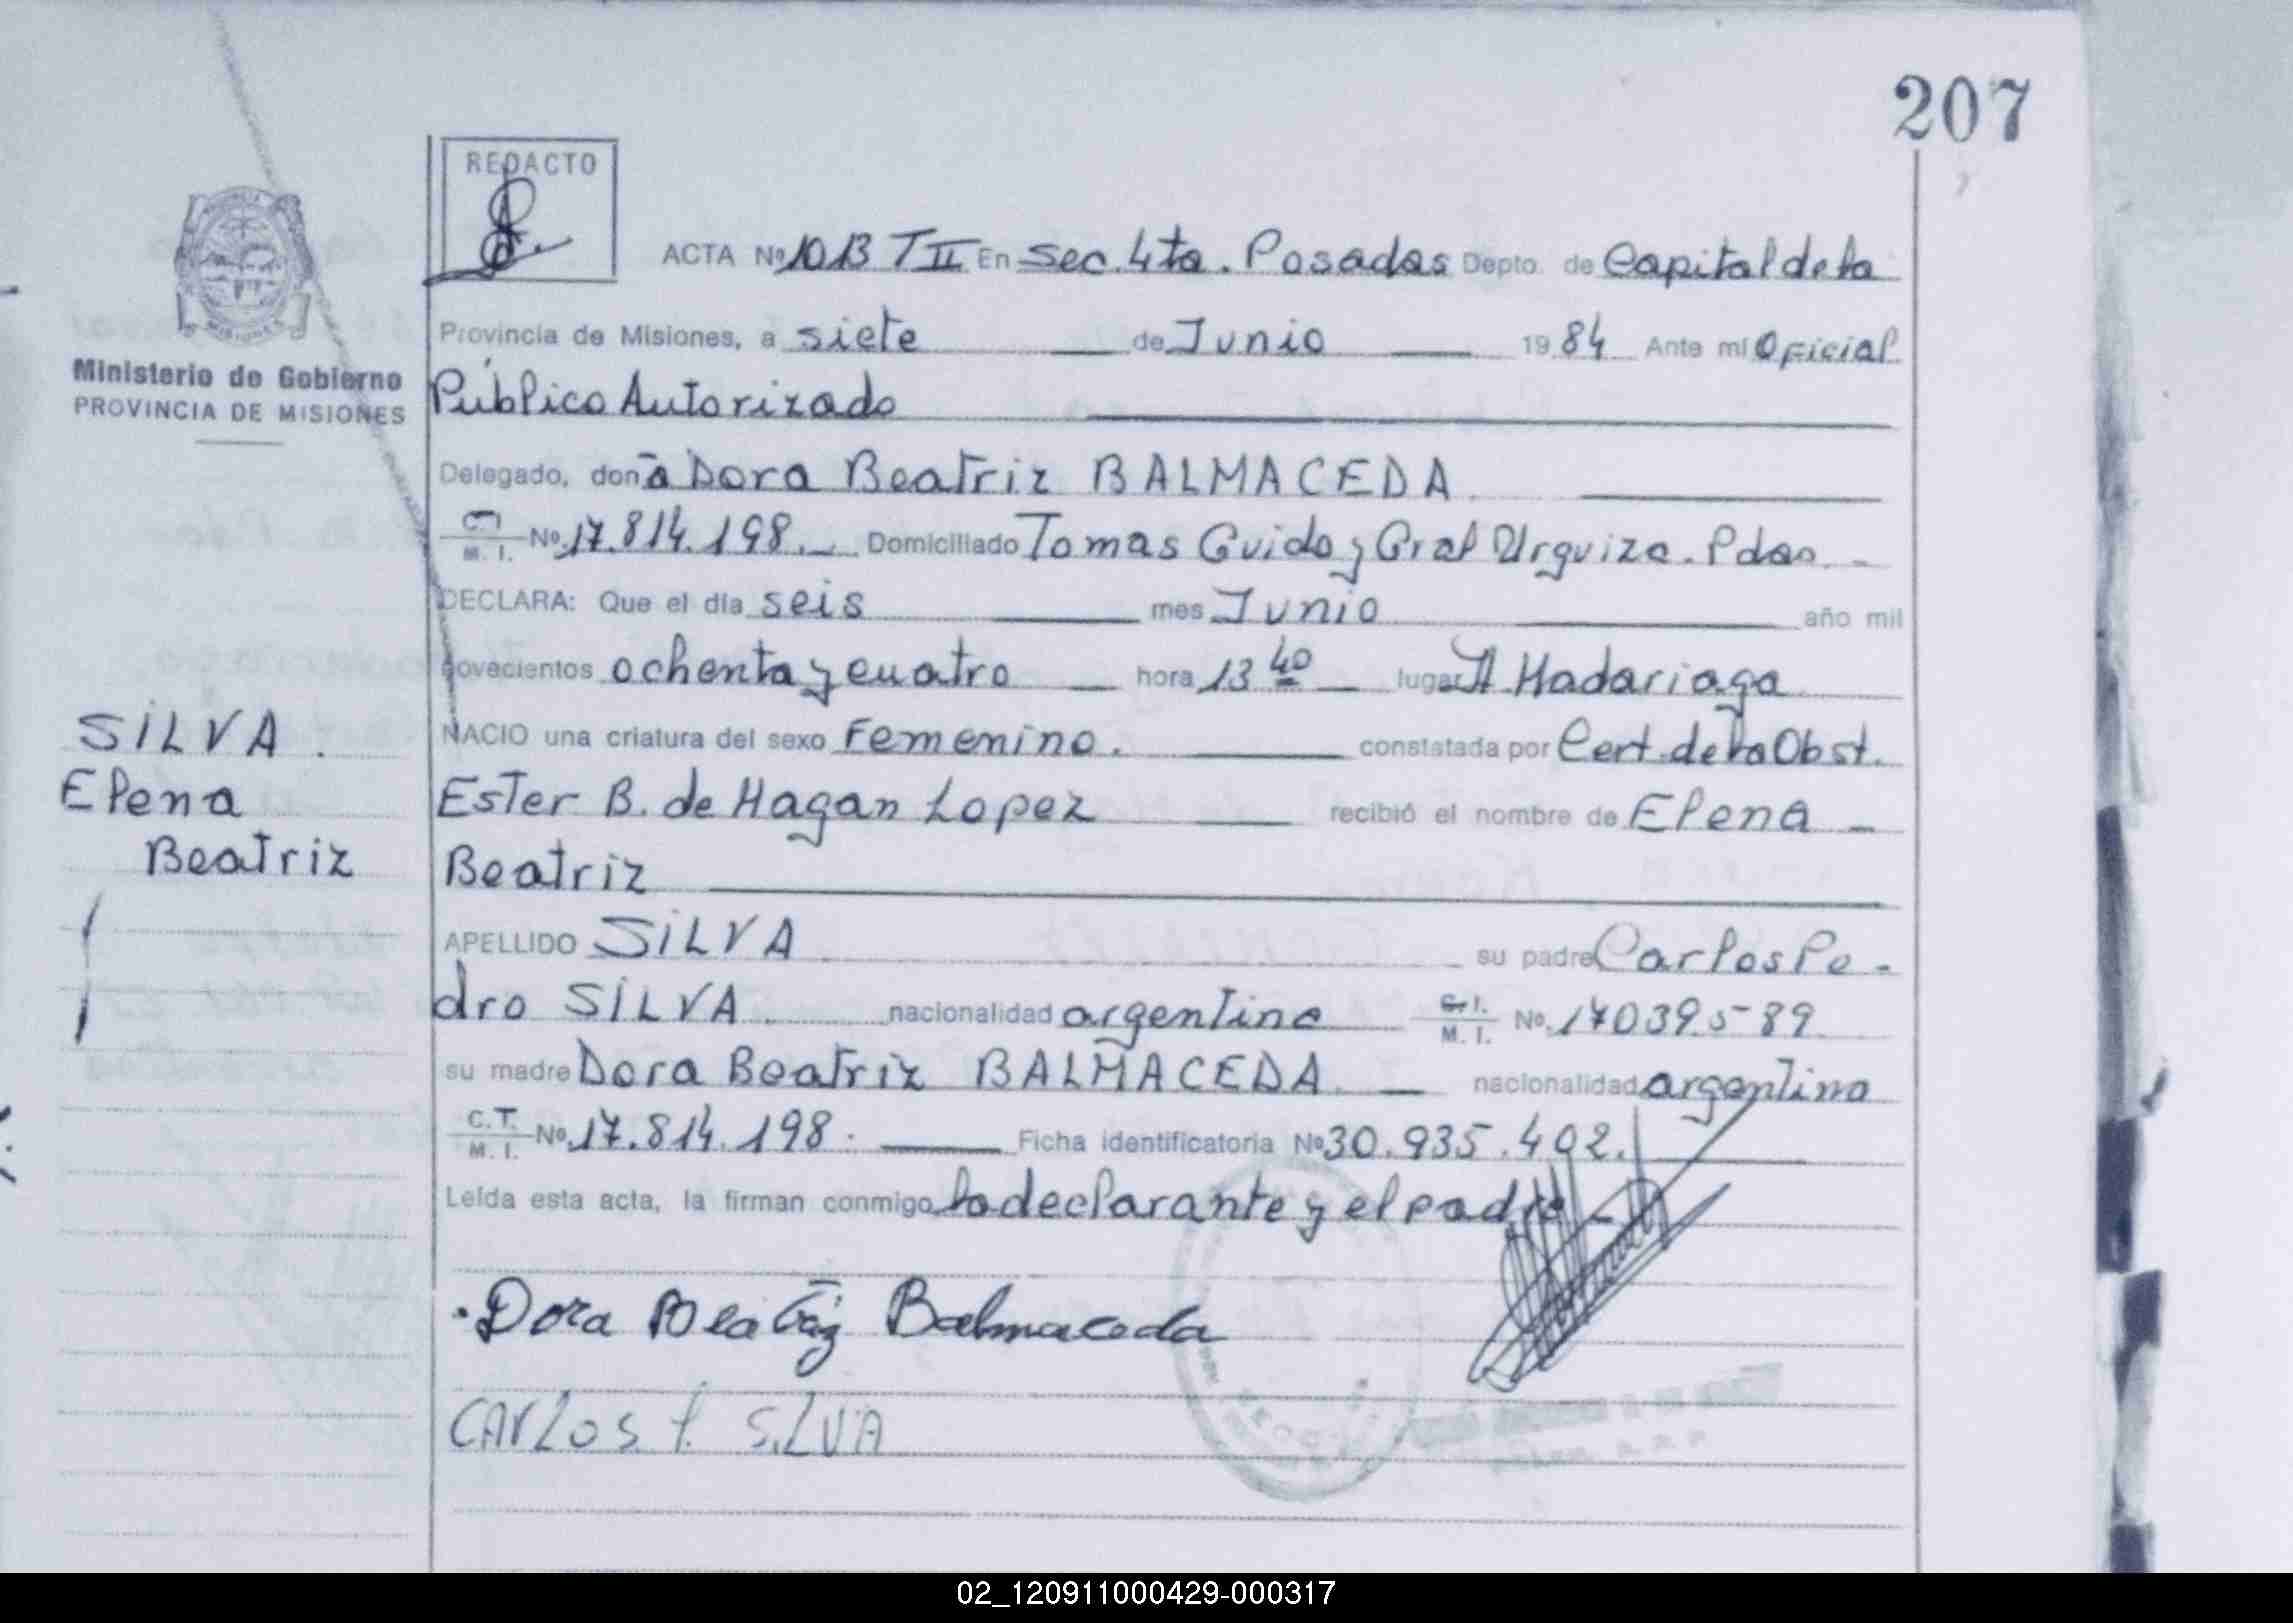 207
REDACTO
ACTA Nº 1013 T II En Sec. 4ta. Posadas Depto. de Capital de la
Provincia de Misiones, a siete de Junio 1984 Ante mí Oficial
Ministerio de Gobierno
PROVINCIA DE MISIONES
Público Autorizado
Delegado, doña Dora Beatriz BALMACEDA
M. I. Nº 17.814.198. Domiciliado Tomas Guido y Gral Urquiza. Pdas.
DECLARA: Que el día seis mes Junio año mil
novecientos ochenta y cuatro hora 13 40 lugar H. Madariaga
SILVA.
Elena
Beatriz
NACIO una criatura del sexo Femenino. constatada por Cert. de la Obst.
Ester B. de Hagan Lopez recibió el nombre de Elena
Beatriz
APELLIDO SILVA su padre Carlos Pe-
dro SILVA nacionalidad argentina C. I. M. I. Nº 17039589
su madre Dora Beatriz BALMACEDA. nacionalidad argentina
C. I. M. I. Nº 17.814.198. Ficha identificatoria Nº 30.935.402.
Leída esta acta, la firman conmigo la declarante y el padre
Dora Beatriz Balmaceda
CARLOS P. SILVA
02_120911000429-000317